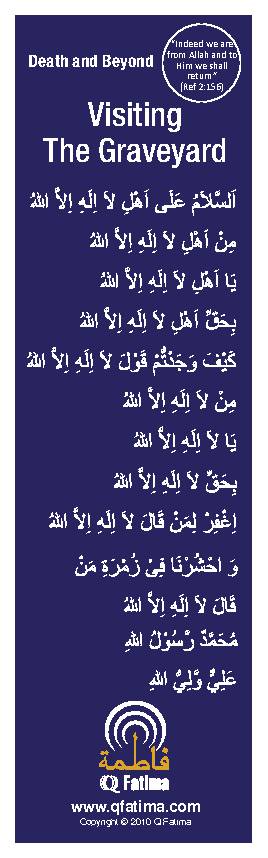 "Indeed we are
from Allah and to
Him we shall
return"
(Ref 2:156)
Death and Beyond
Visiting
The Graveyard
اَلسَّلاَمُ عَلٰى اَهْلِ لاَ اِلَهِ اِلاَّ اللهُ
مِنْ اَهْلِ لاَ اِلَهِ اِلاَّ اللهُ
يَا اَهْلِ لاَ اِلَهِ اِلاَّ اللهُ
بِحَقِّ اَهْلِ لاَ اِلَهِ اِلاَّ اللهُ
كَيْفَ وَجَنْتُمْ قَوْلَ لاَ اِلَهِ اِلاَّ اللهُ
مِنْ لاَ اِلَهِ اِلاَّ اللهُ
يَا لاَ اِلَهِ اِلاَّ اللهُ
بِحَقِّ لاَ اِلَهِ اِلاَّ اللهُ
اِغْفِرْ لِمَنْ قَالَ لاَ اِلَهِ اِلاَّ اللهُ
وَ احْشُرْنَا فِىْ زُمْرَةِ مَنْ
قَالَ لاَ اِلَهِ اِلاَّ اللهُ
مُحَمَّدٌ رَّسُوْلُ اللهِ
عَلِيٌّ وَّلِيُّ اللهِ
فاطمة
Q Fatima
www.qfatima.com
Copyright © 2010 Q Fatima